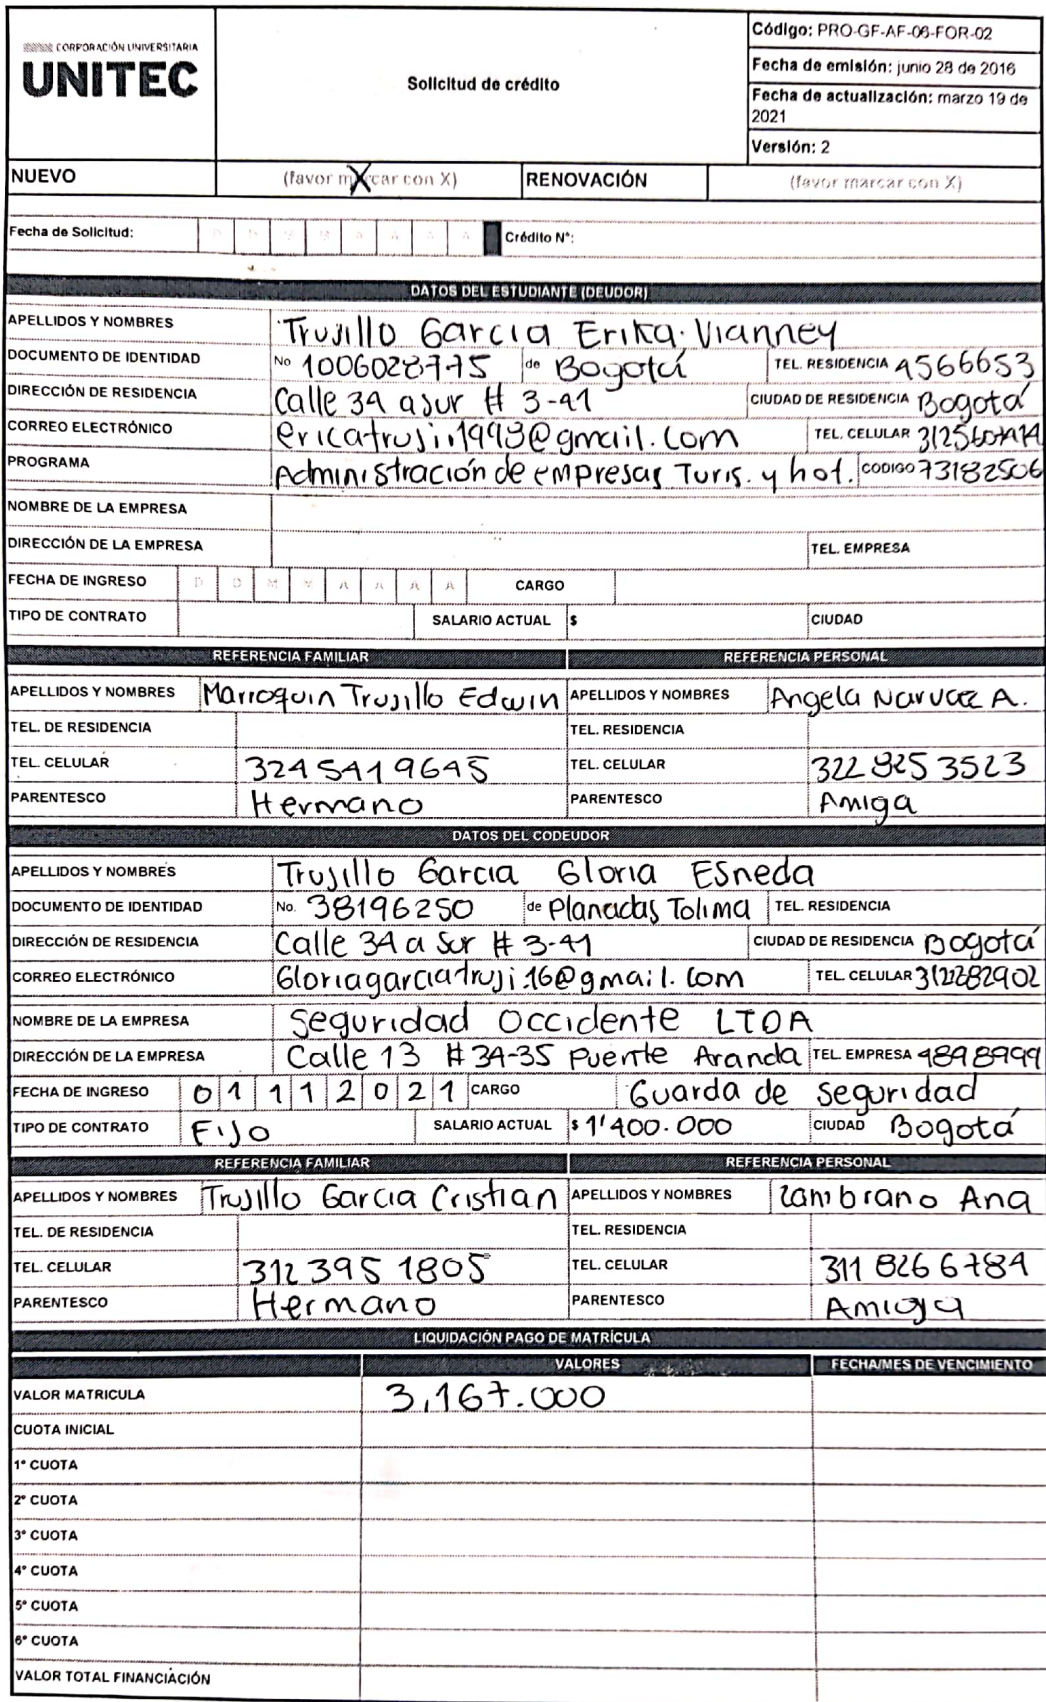 CORPORACIÓN UNIVERSITARIA
UNITEC
Solicitud de crédito
Código: PRO-GF-AF-06-FOR-02
Fecha de emisión: junio 28 de 2016
Fecha de actualización: marzo 19 de 2021
Versión: 2
NUEVO (favor marcar con X) X RENOVACIÓN (favor marcar con X)
Fecha de Solicitud: D D M M A A A A Crédito N°:
DATOS DEL ESTUDIANTE (DEUDOR)
APELLIDOS Y NOMBRES Trujillo Garcia Erika Vianney
DOCUMENTO DE IDENTIDAD No 1006028775 de Bogotá TEL. RESIDENCIA 4566653
DIRECCIÓN DE RESIDENCIA Calle 34 a sur # 3-41 CIUDAD DE RESIDENCIA Bogotá
CORREO ELECTRÓNICO @gmail.com TEL. CELULAR
PROGRAMA Administración de empresas Turis. y hot. CODIGO 73182506
NOMBRE DE LA EMPRESA
DIRECCIÓN DE LA EMPRESA TEL. EMPRESA
FECHA DE INGRESO D D M M A A A A CARGO
TIPO DE CONTRATO SALARIO ACTUAL $ CIUDAD
REFERENCIA FAMILIAR REFERENCIA PERSONAL
APELLIDOS Y NOMBRES Marroquin Trujillo Edwin APELLIDOS Y NOMBRES Angela Narvaez A.
TEL. DE RESIDENCIA TEL. RESIDENCIA
TEL. CELULAR 3245419645 TEL. CELULAR 322 825 3523
PARENTESCO Hermano PARENTESCO Amiga
DATOS DEL CODEUDOR
APELLIDOS Y NOMBRES Trujillo Garcia Gloria Esneda
DOCUMENTO DE IDENTIDAD No. 38196250 de Planadas Tolima TEL. RESIDENCIA
DIRECCIÓN DE RESIDENCIA Calle 34 a Sur # 3-41 CIUDAD DE RESIDENCIA Bogotá
CORREO ELECTRÓNICO Gloriagarciatruji.16@gmail.com TEL. CELULAR 3122282902
NOMBRE DE LA EMPRESA Seguridad Occidente LTDA
DIRECCIÓN DE LA EMPRESA Calle 13 # 34-35 Puente Aranda TEL. EMPRESA 4898999
FECHA DE INGRESO 0 1 1 1 2 0 2 1 CARGO Guarda de seguridad
TIPO DE CONTRATO Fijo SALARIO ACTUAL $ 1'400.000 CIUDAD Bogotá
REFERENCIA FAMILIAR REFERENCIA PERSONAL
APELLIDOS Y NOMBRES Trujillo Garcia Cristian APELLIDOS Y NOMBRES Zambrano Ana
TEL. DE RESIDENCIA TEL. RESIDENCIA
TEL. CELULAR 312 395 1805 TEL. CELULAR 311 826 6784
PARENTESCO Hermano PARENTESCO Amiga
LIQUIDACIÓN PAGO DE MATRÍCULA
VALORES FECHA/MES DE VENCIMIENTO
VALOR MATRICULA 3,167.000
CUOTA INICIAL
1° CUOTA
2° CUOTA
3° CUOTA
4° CUOTA
5° CUOTA
6° CUOTA
VALOR TOTAL FINANCIACIÓN